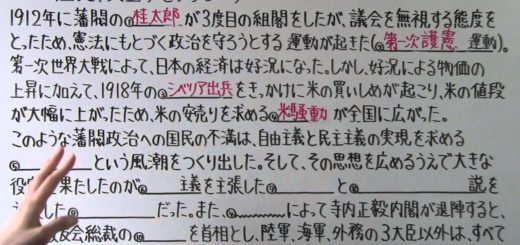 1912年に藩閥の@桂太郎が3度目の組閣をしたが、議会を無視する態度を
とったため、憲法にもとづく政治を守ろうとする運動が起きた(@第一次護憲 運動)。
第一次世界大戦によって、日本の経済は好況になった。しかし、好況による物価の
上昇に加えて、1918年の@シベリア出兵をきっかけに米の買いしめが起こり、米の値段
が大幅に上がったため、米の安売りを求める@米騒動が全国に広がった。
このような藩閥政治への国民の不満は、自由主義と民主主義の実現を求める
@ という風潮をつくり出した。そして、その思想を広めるうえで大きな
役 果たしたのが@ 主義を主張した@ と@ 説を
した@ だった。また、@ によって寺内正毅内閣が退陣すると、
友会総裁の@ を首相とし、陸軍、海軍、外務の3大臣以外は、すべて